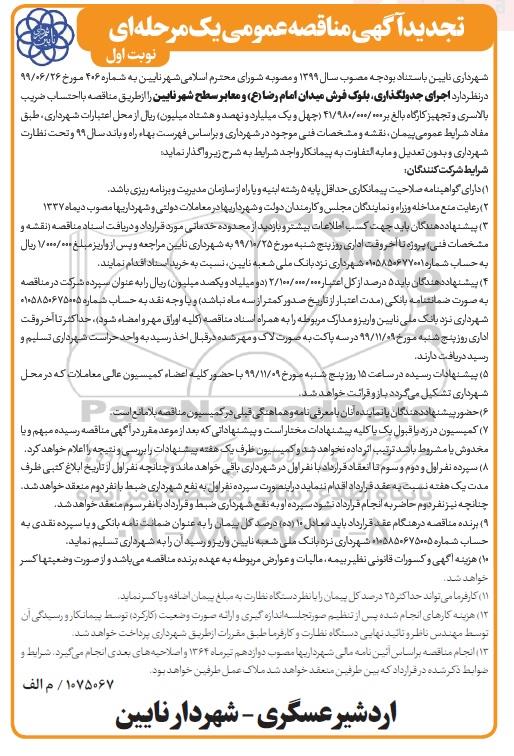 تجدید آگهی مناقصه عمومی یک مرحله‌ای
نوبت اول
شهرداری نایین باستناد بودجه مصوب سال ۱۳۹۹ و مصوبه شورای محترم اسلامی شهر نایین به شماره ۴۰۶ مورخ ۹۹/۰۶/۲۶
در نظر دارد اجرای جدولگذاری، بلوک فرش میدان امام رضا (ع) و معابر سطح شهر نایین را از طریق مناقصه با احتساب ضریب
بالاسری و تجهیز کارگاه بالغ بر ۴۱/۹۸۰/۰۰۰/۰۰۰ (چهل و یک میلیارد و نهصد و هشتاد میلیون) ریال از محل اعتبارات شهرداری، طبق
مفاد شرایط عمومی پیمان، نقشه و مشخصات فنی موجود در شهرداری و براساس فهرست بهاء راه و باند سال ۹۹ و تحت نظارت
شهرداری و بدون تعدیل و مابه التفاوت به پیمانکار واجد شرایط به شرح زیر واگذار نماید:
شرایط شرکت کنندگان:
۱) دارای گواهینامه صلاحیت پیمانکاری حداقل پایه ۵ رشته ابنیه و یا راه از سازمان مدیریت و برنامه ریزی باشد.
۲) رعایت منع مداخله وزراء و نمایندگان مجلس و کارمندان دولت و شهرداریها در معاملات دولتی و شهرداریها مصوب دیماه ۱۳۳۷
۳) پیشنهاددهندگان باید جهت کسب اطلاعات بیشتر و بازدید از محدوده خدماتی مورد قرارداد و دریافت اسناد مناقصه (نقشه و
مشخصات فنی) پروژه تا آخر وقت اداری روز پنج شنبه مورخ ۹۹/۱۰/۲۵ به شهرداری نایین مراجعه و پس از واریز مبلغ ۱/۰۰۰/۰۰۰ ریال
به حساب شماره ۰۱۰۵۸۵۰۶۷۷۰۰۱ شهرداری نزد بانک ملی شعبه نایین، نسبت به خرید اسناد اقدام نمایند.
۴) پیشنهاددهندگان باید ۵ درصد از کل اعتبار ۲/۱۰۰/۰۰۰/۰۰۰ (دو میلیارد و یکصد میلیون) ریال را به عنوان سپرده شرکت در مناقصه
به صورت ضمانتنامه بانکی (مدت اعتبار از تاریخ صدور کمتر از سه ماه نباشد) و یا وجه نقد به حساب شماره ۰۱۰۵۸۵۰۶۷۵۰۰۵
شهرداری نزد بانک ملی نایین واریز و مدارک مربوطه را به همراه اسناد مناقصه (کلیه اوراق مهر و امضاء شود)، حداکثر تا آخر وقت
اداری روز پنج شنبه مورخ ۹۹/۱۱/۰۹ در سه پاکت به صورت لاک و مهر شده در قبال اخذ رسید به واحد حراست شهرداری تسلیم و
رسید دریافت دارند.
۵) پیشنهادات رسیده در ساعت ۱۵ روز پنج شنبه مورخ ۹۹/۱۱/۰۹ با حضور کلیه اعضاء کمیسیون عالی معاملات که در محل
شهرداری تشکیل می‌گردد باز و قرائت خواهد شد.
۶) حضور پیشنهاددهندگان یا نماینده آنان با معرفی نامه و هماهنگی قبلی در کمیسیون مناقصه بلامانع است.
۷) کمیسیون در رد یا قبول یک یا کلیه پیشنهادات مختار است و پیشنهاداتی که بعد از موعد مقرر در آگهی مناقصه رسیده مبهم و یا
مخدوش یا مشروط باشد ترتیب اثر داده نخواهد شد و کمیسیون ظرف یک هفته پیشنهادات را بررسی و نتیجه را اعلام خواهد کرد.
۸) سپرده نفر اول و دوم و سوم تا انعقاد قرارداد با نفر اول در شهرداری باقی خواهد ماند و چنانچه نفر اول از تاریخ ابلاغ کتبی ظرف
مدت یک هفته نسبت به عقد قرارداد اقدام ننماید در اینصورت سپرده نفر اول به نفع شهرداری ضبط با نفر دوم منعقد خواهد شد.
چنانچه نیز نفر دوم حاضر به انجام قرارداد نشود سپرده او به نفع شهرداری ضبط و قرارداد با نفر سوم منعقد خواهد شد.
۹) برنده مناقصه در هنگام عقد قرارداد باید معادل ۱۰ (ده) درصد کل پیمان را به عنوان ضمانت نامه بانکی و یا سپرده نقدی به
حساب شماره ۰۱۰۵۸۵۰۶۷۵۰۰۵ شهرداری نزد بانک ملی شعبه نایین واریز و رسید آن را به شهرداری تسلیم نماید.
۱۰) هزینه آگهی و کسورات قانونی نظیر بیمه، مالیات و عوارض مربوطه به عهده برنده مناقصه می‌باشد و از صورت وضعیتها کسر
خواهد شد.
۱۱) کارفرما می‌تواند حداکثر ۲۵ درصد کل پیمان را با نظر دستگاه نظارت به مبلغ پیمان اضافه و یا کسر نماید.
۱۲) هزینه کارهای انجام شده پس از تنظیم صورتجلسه اندازه گیری و ارائه صورت وضعیت (کارکرد) توسط پیمانکار و رسیدگی آن
توسط مهندس ناظر و تائید نهایی دستگاه نظارت و کارفرما طبق مقررات از طریق شهرداری پرداخت خواهد شد.
۱۳) انجام مناقصه براساس آئین نامه مالی شهرداریها مصوب دوازدهم تیرماه ۱۳۶۴ و اصلاحیه‌های بعدی انجام می‌گیرد. شرایط و
ضوابط ذکر شده در قرارداد که بین طرفین منعقد خواهد شد ملاک عمل طرفین خواهد بود.
۱۰۷۵۰۶۷ / م الف
اردشیر عسگری - شهردار نایین